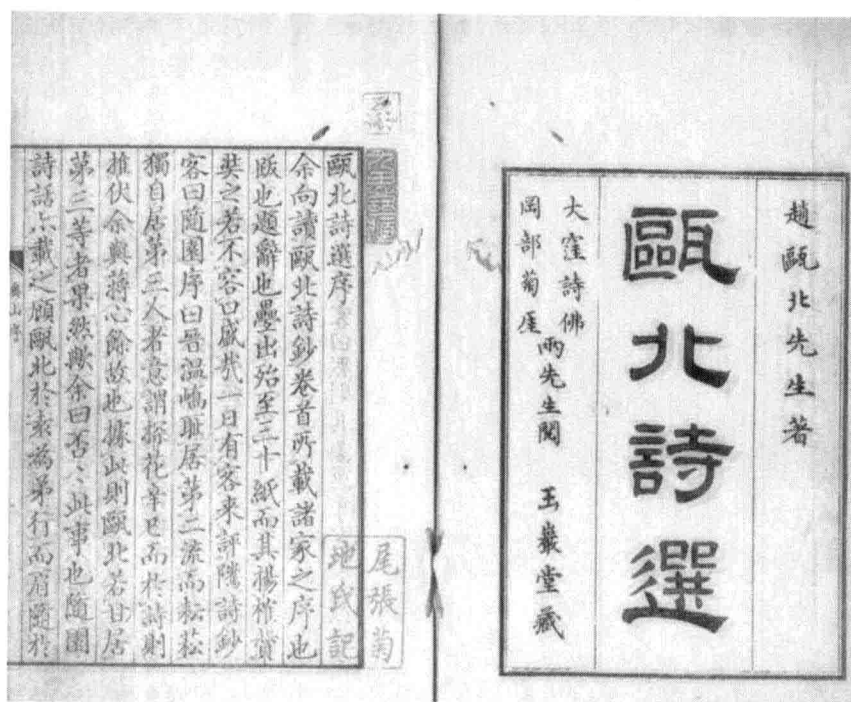 趙甌北先生著
甌北詩選
大窪詩佛
岡部菊厓
兩先生閱
玉巖堂藏
尾張菊
地氏記
甌北詩選序
余向讀甌北詩鈔卷首所載諸家之序也
版也題辭也疊出殆至三十紙而其揚搉贊
奘之若不容口盛哉一日有客来評隲詩鈔
客曰隨園序曰晉温嶠耻居第二流而耘菘
獨自居第三人者意謂探花辛巳而於詩則
推伏余與蔣心餘故也據此則甌北若甘居
第三等者果然歟余曰否〻此事也隨園
詩話亦載之顧甌北於袁為弟行而肩隨於